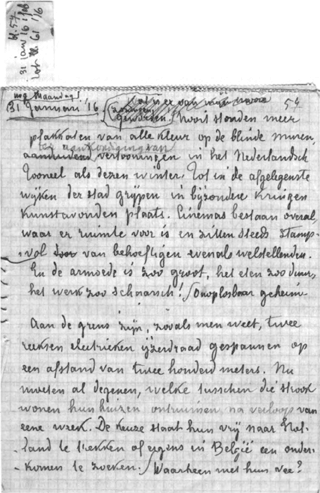 31 jan 16
nog Maandag!
31 Januari '16
54
Nooit stonden meer
plakkaten van alle kleur op de blinde muren,
vertooningen in het Nederlandsch
Tooneel als dezen winter. Tot in de afgelegenste
wijken der stad grijpen in bijzondere kringen
kunstavonden plaats. Cinemas bestaan overal
waar er ruimte voor is en zitten steeds stamp-
vol van behoeftigen evenals weldstellenden.
En de armoede is zoo groot, het eten zoo duur,
het werk zoo schaarsch! Onoplosbaar geheim.
Aan de grens zijn, zooals men weet, twee
reeksen electrieken ijzerdraad gespannen op
een afstand van twee honderd meters. Nu
moeten al degenen, welke tusschen die strook
wonen hun huizen ontruimen na verloop van
eene week. De keuze staat hun vrij naar Hol-
land te trekken of ergens in België een onder-
komen te zoeken. Waarheen met hun vee?